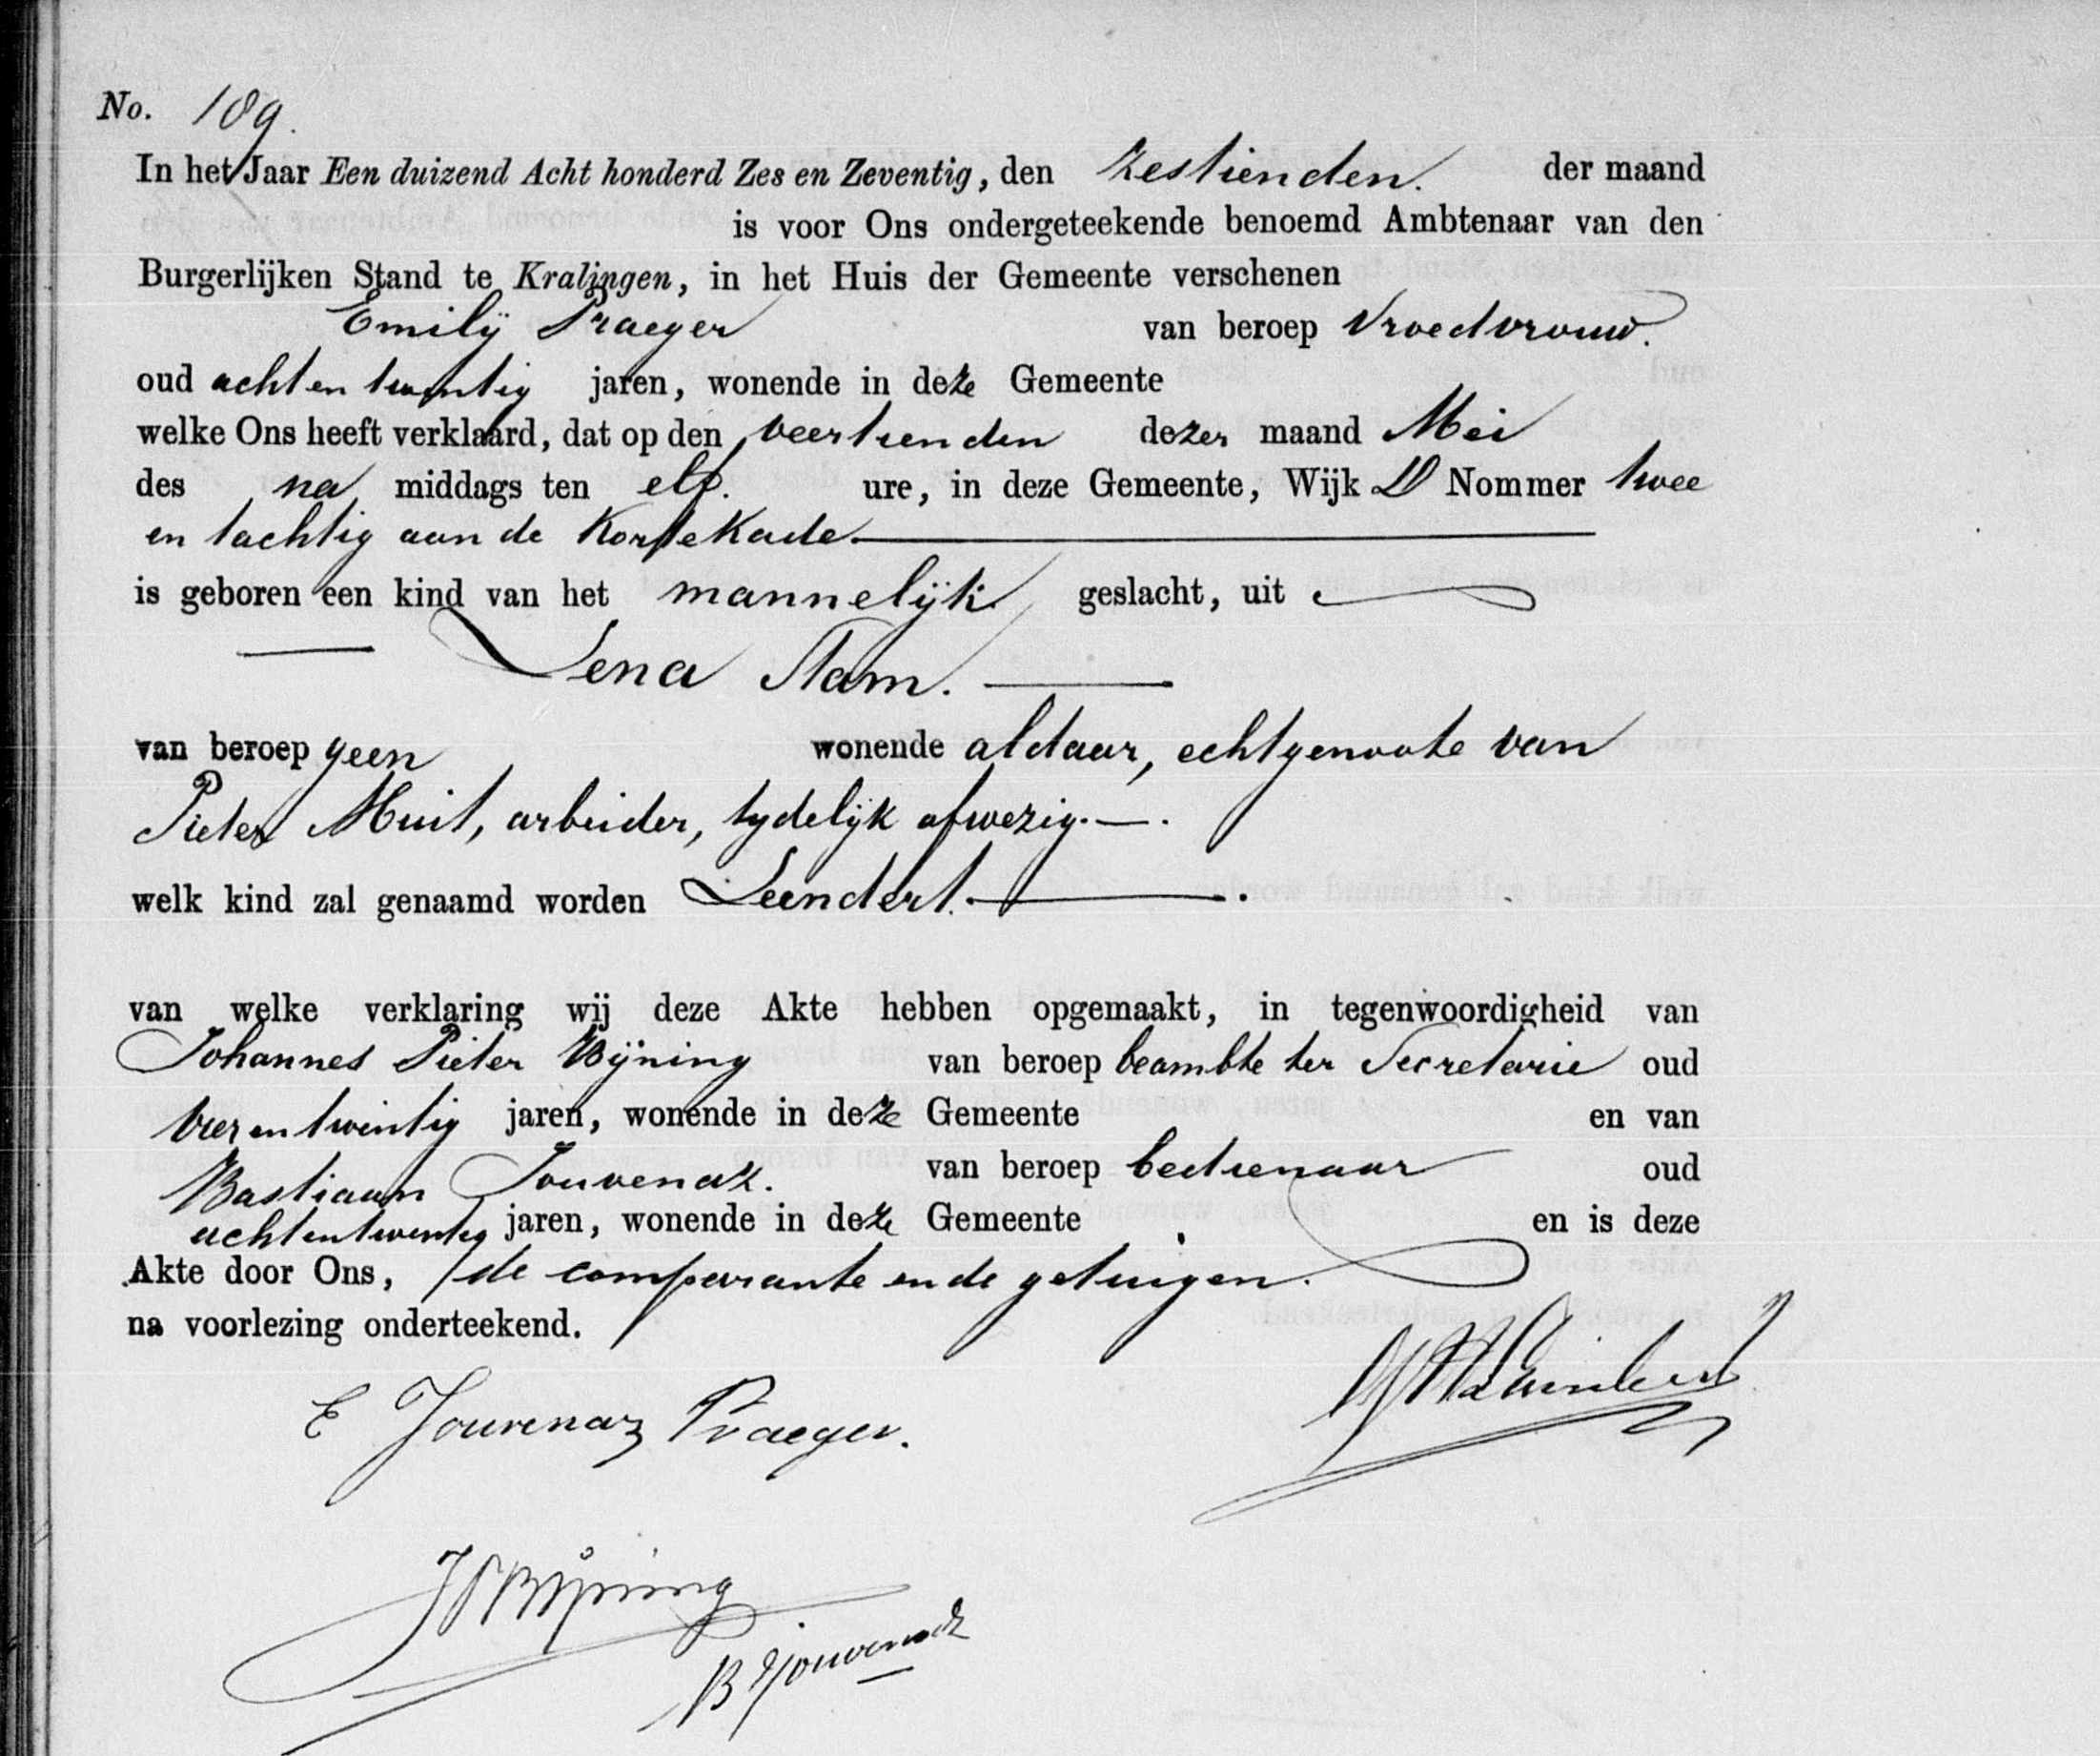 No. 189.
In het Jaar Een duizend Acht honderd Zes en Zeventig, den zestienden. der maand
is voor Ons ondergeteekende benoemd Ambtenaar van den
Burgerlijken Stand te Kralingen, in het Huis der Gemeente verschenen
Emilij Praeger van beroep Vroedvrouw.
oud acht en twintig jaren, wonende in deze Gemeente
welke Ons heeft verklaard, dat op den veertienden dezer maand Mei
des na middags ten elf. ure, in deze Gemeente, Wijk D Nommer twee
en tachtig aan de Kortekade.
is geboren een kind van het mannelijk geslacht, uit
Lena Stam.
van beroep geen wonende aldaar, echtgenoote van
Pieter Muit, arbeider, tydelijk afwezig.
welk kind zal genaamd worden Leendert.
van welke verklaring wij deze Akte hebben opgemaakt, in tegenwoordigheid van
Johannes Pieter Bijning van beroep beambte ter Secretarie oud
vier en twintig jaren, wonende in deze Gemeente en van
Bastiaan Jouvenaz. van beroep bedienaar oud
achtentwintig jaren, wonende in deze Gemeente en is deze
Akte door Ons, de comparante en de getuigen.
na voorlezing onderteekend.
E Jouvenaz Praeger.
JPBijning
B Jouvenaz